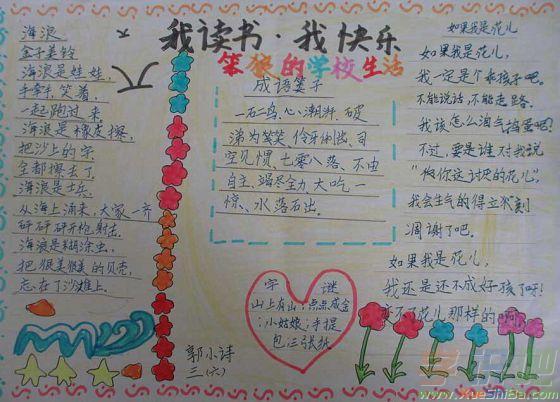 我读书·我快乐
笨狼的学校生活
海浪
金子美铃
海浪是娃娃,
手牵手,笑着,
一起跑过来。
海浪是橡皮擦,
把沙上的字
全都擦去了。
海浪是士兵,
从海上涌来,大家一齐
砰砰砰开枪射击。
海浪是糊涂虫,
把很美很美的贝壳
忘在了沙滩上。
成语篓子
一石二鸟、心潮
破涕为笑、伶牙俐齿、司
空见惯、七零八落、不由
自主、竭尽全力、大吃一
惊、水落石出。
字谜
山上有山;点点成金
;小姑娘,手提
包;三张纸
郭小诗
三(六)
如果我是花儿
如果我是花儿,
我一定是个乖孩子吧。
不能说话,不能走路,
我该怎么淘气捣蛋呢?
不过,要是谁对我说
"你这讨厌的花儿",
我会生气的得立刻
凋谢了吧。
如果我是花儿,
我还是还不成好孩子呀!
变不了花儿那样的啊
www.XueShiBa.com